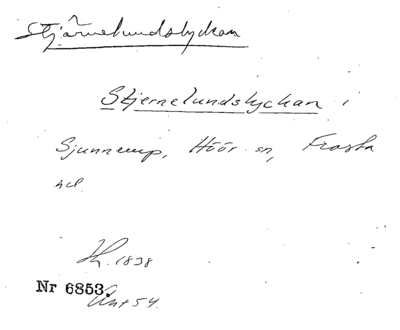 Stjärnelundslyckan
Stjernelundslyckan i
Sjunnerup, Höör sn, Frosta
hd.
1838
Nr 6853.
Ant 54.